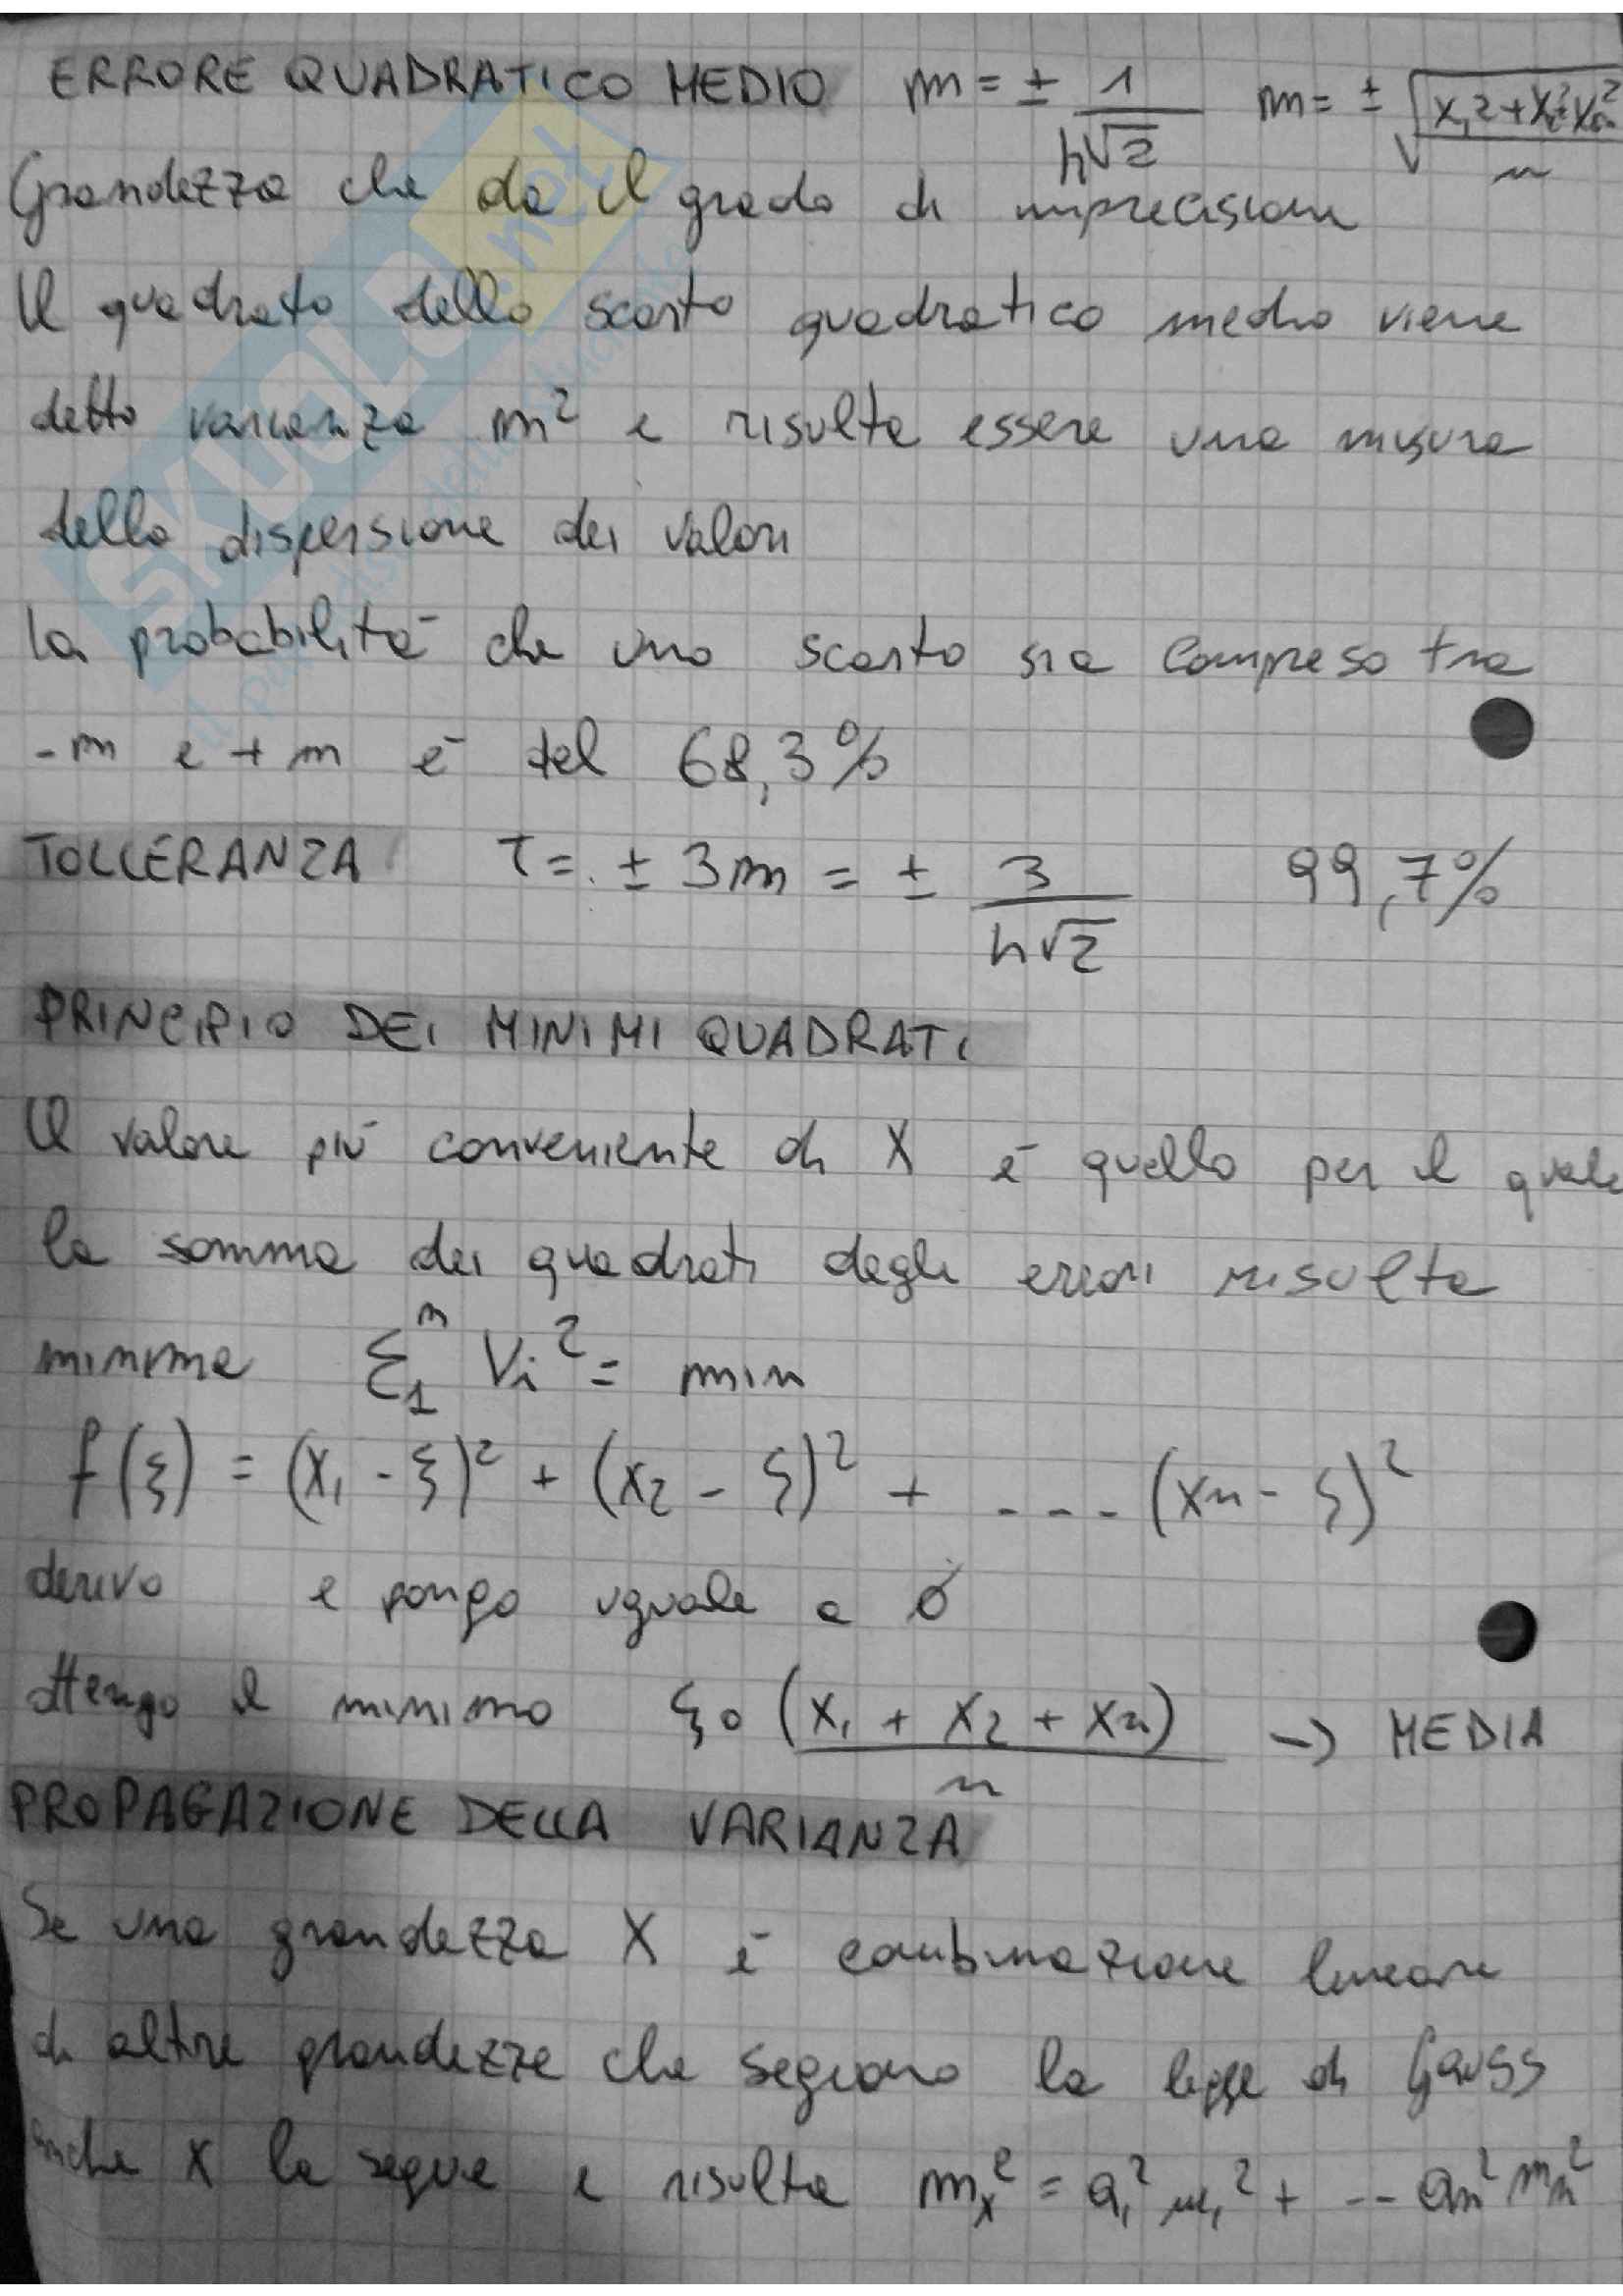 ERRORE QUADRATICO MEDIO m = ± 1/(h√2) m = ± √((x₁2+x₂²+xₙ²)/n)
Grandezza che da il grado di imprecisione
Il quadrato dello scarto quadratico medio viene
detto varianza m² e risulta essere una misura
della dispersione dei valori
la probabilità che uno scarto sia compreso tra
-m e +m è del 68,3%
TOLLERANZA T = ± 3m = ± 3/(h√2) 99,7%
PRINCIPIO DEI MINIMI QUADRATI
Il valore più conveniente di X è quello per il quale
la somma dei quadrati degli errori risulta
minima Σ₁ⁿ Vi² = min
f(ξ) = (x₁ - ξ)² + (x₂ - ξ)² + ---- (xn - ξ)²
derivo e pongo uguale a 0
ottengo il minimo ξ₀ (x₁ + x₂ + xn)/n → MEDIA
PROPAGAZIONE DELLA VARIANZA
Se una grandezza X è combinazione lineare
di altre grandezze che seguono la legge di Gauss
anche X la segue e risulta mₓ² = a₁² m₁² + -- an² mn²
SKUOLA.net
il paradiso dello studente